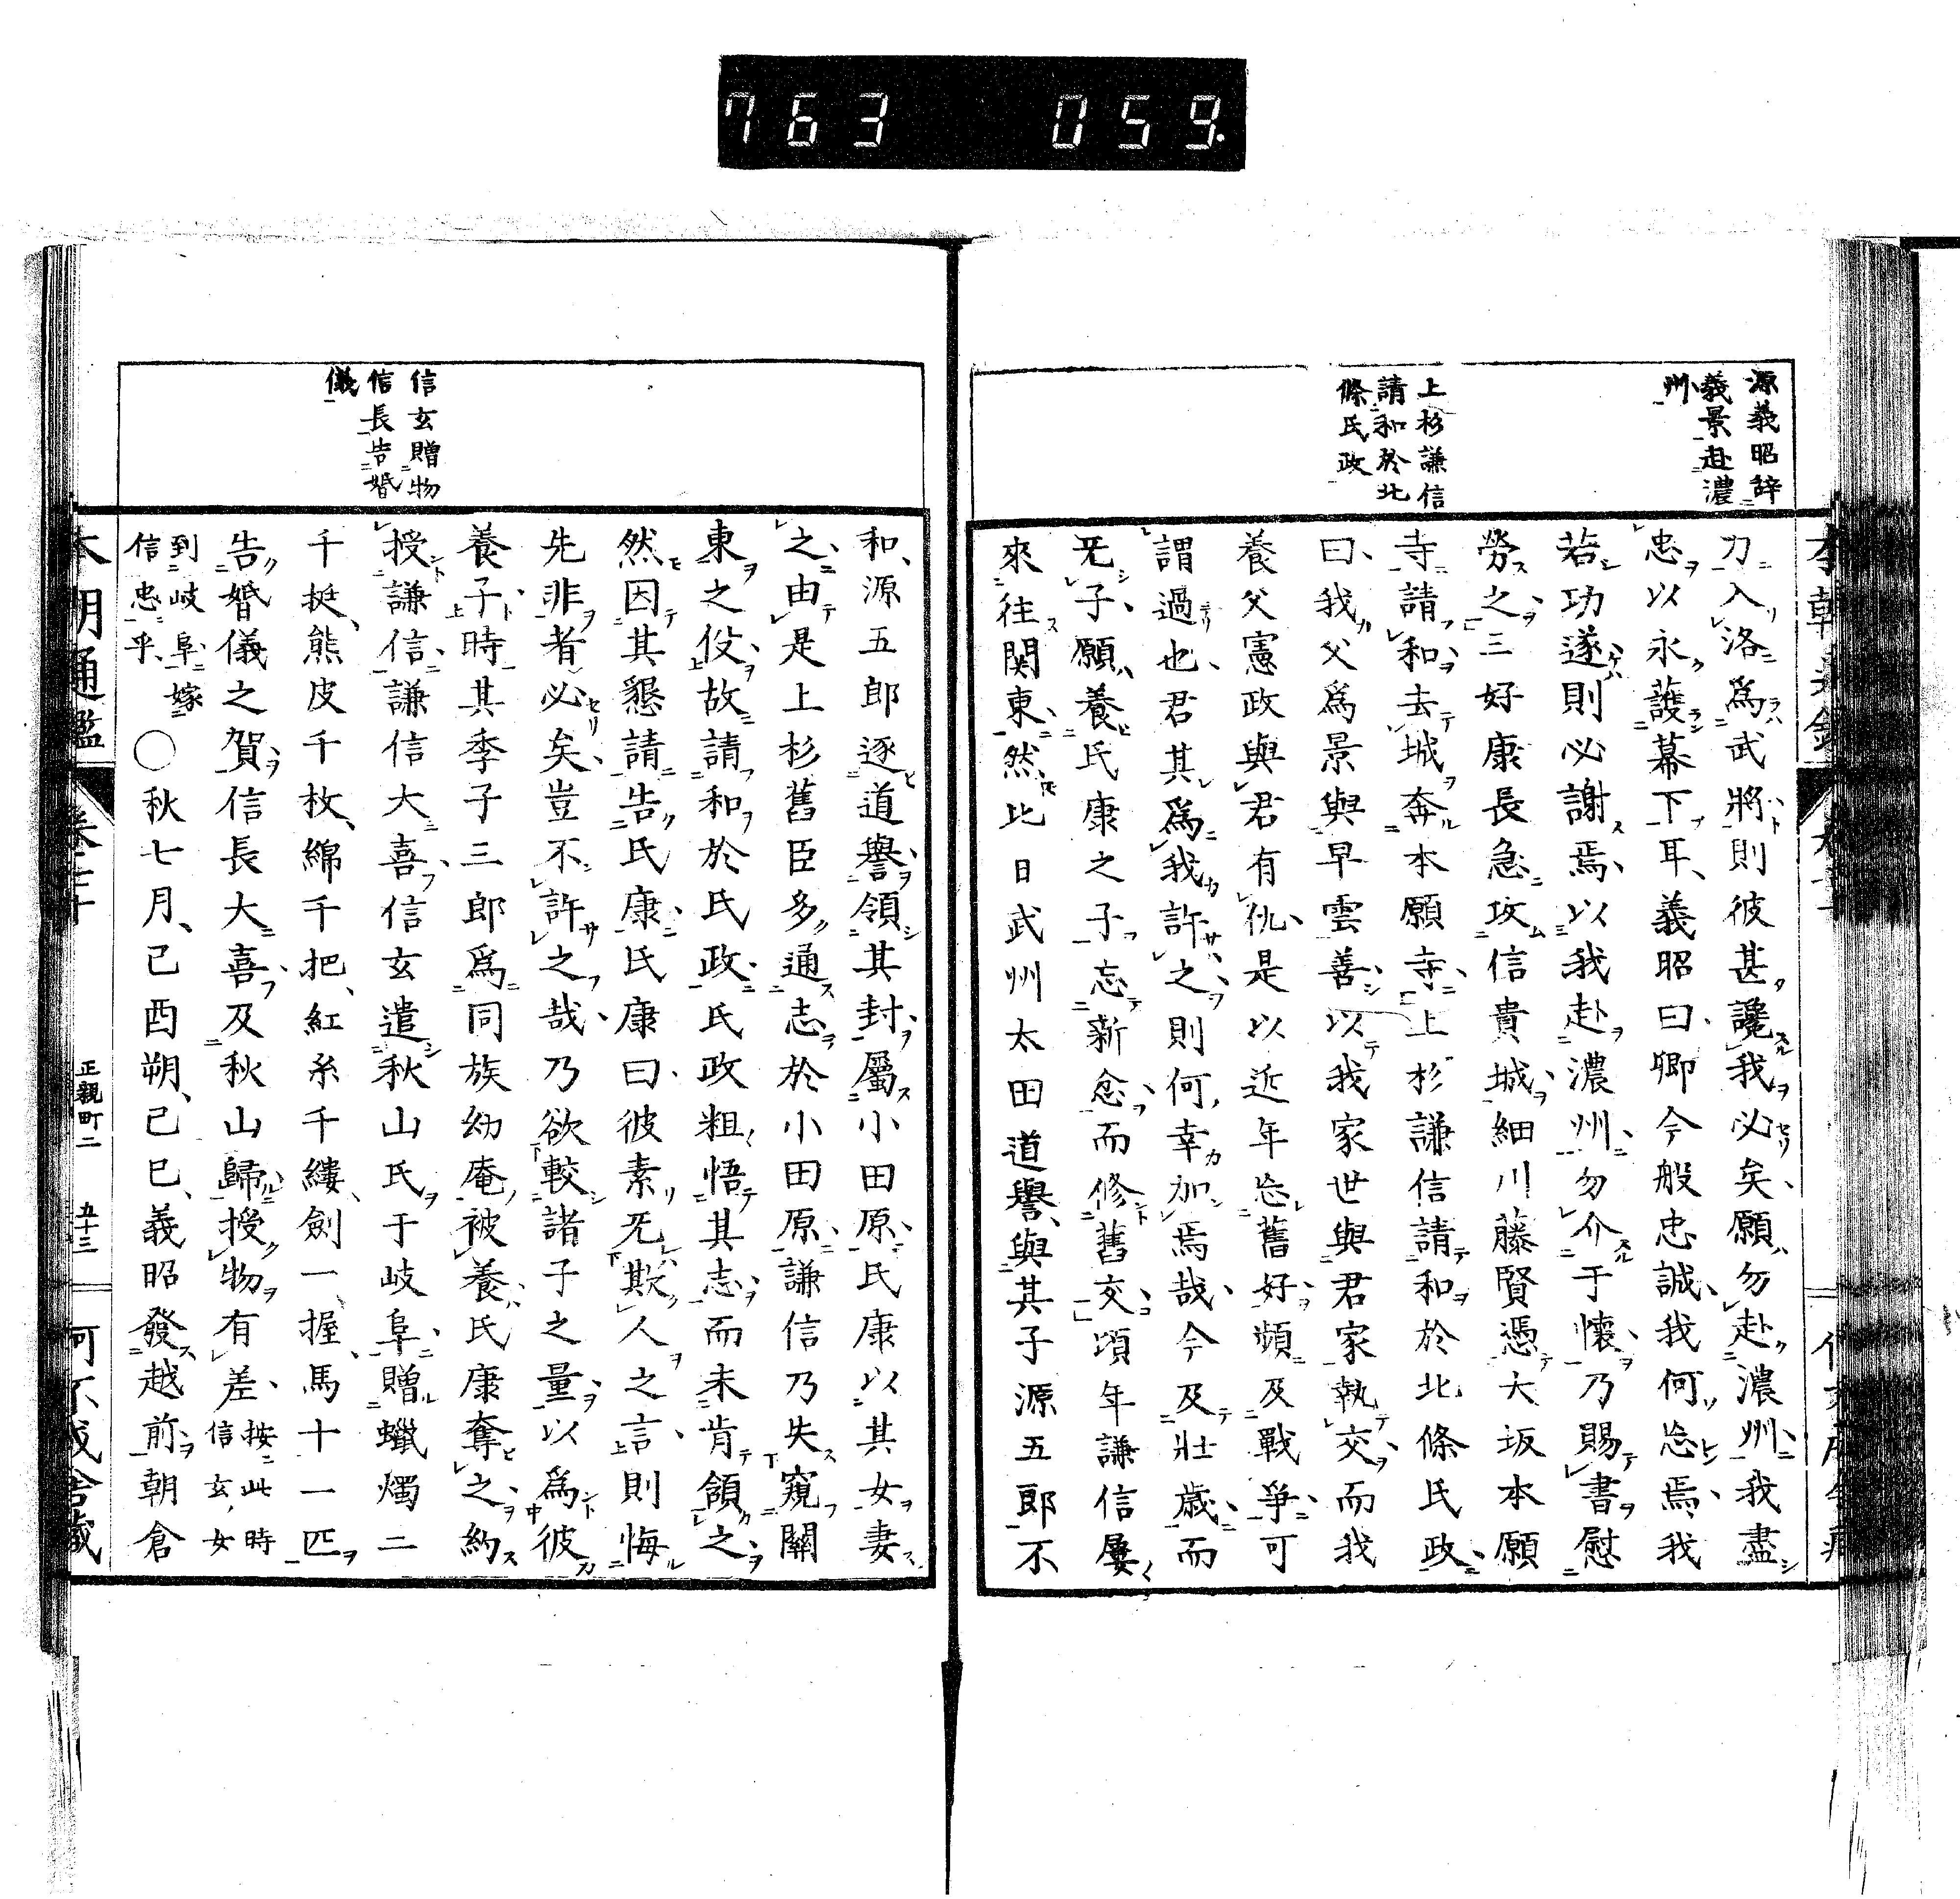 763 059.
源義昭辞
義景赴濃
州
上杉謙信
請和於北
條氏政
力入洛爲武將則彼甚讒我必矣願勿赴濃州我盡
忠以永護幕下耳義昭曰卿今般忠誠我何忘焉我
若功遂則必謝焉以我赴濃州勿介于懷乃賜書慰
勞之三好康長急攻信貴城細川藤賢憑大坂本願
寺請和去城奔本願寺上杉謙信請和於北條氏政
曰我父爲景與早雲善以我家世與君家執交而我
養父憲政與君有仇是以近年忘舊好頻及戰爭可
謂過也君其爲我許之則何幸加焉哉今及壯歳而
无子願養氏康之子忘新忿而修舊交頃年謙信屢
來往関東然比日武州太田道譽與其子源五郎不
信玄贈物
信長告婚
儀
和源五郎逐道譽領其封屬小田原氏康以其女妻
之由是上杉舊臣多通志於小田原謙信乃失窺關
東之伇故請和於氏政氏政粗悟其志而未肯領之
然因其懇請告氏康氏康曰彼素无欺人之言則悔
先非者必矣豈不許之哉乃欲較諸子之量以爲彼
養子時其季子三郎爲同族幼庵被養氏康奪之約
授謙信謙信大喜信玄遣秋山氏于岐阜贈蠟燭二
千挺熊皮千枚綿千把紅糸千縷劍一握馬十一匹
告婚儀之賀信長大喜及秋山歸授物有差按此時信玄女
到岐阜嫁信忠乎○秋七月己酉朔己巳義昭發越前朝倉
本朝通鑑
正親町二
五十三